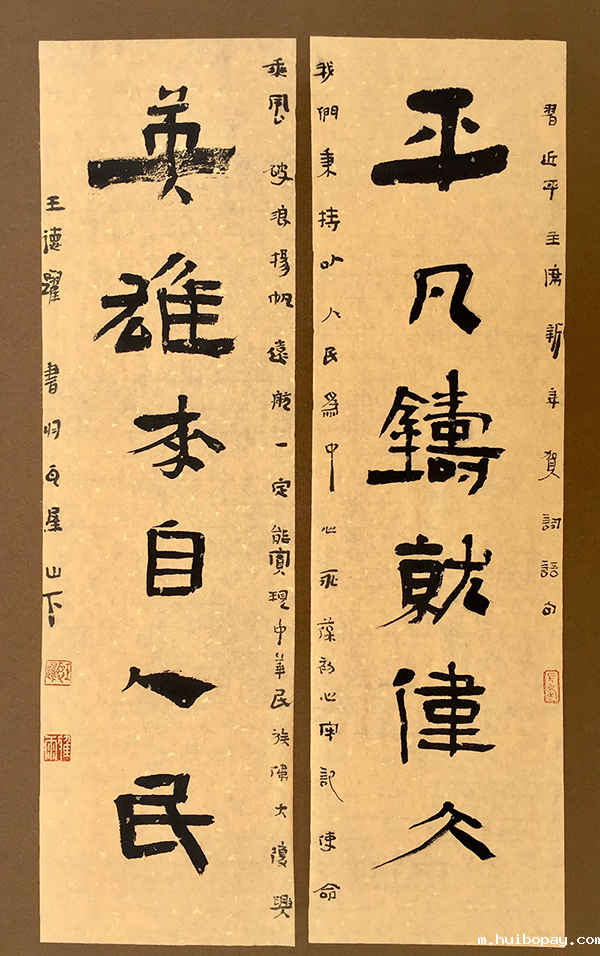 習近平主席新年賀詞語句
平凡鑄就偉大
我們秉持以人民爲中心永葆初心牢記使命
乘風破浪揚帆遠航一定能實現中華民族偉大復興
英雄来自人民
王德躍書山下
m.huibopay.com